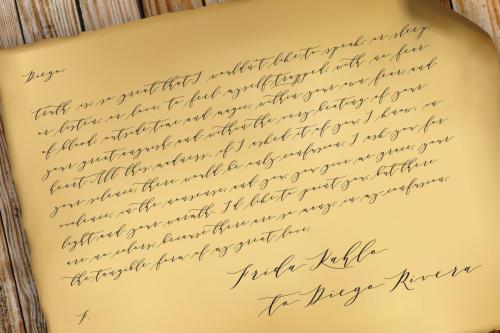 Diego:
truth is, so great that I wouldn't like to speak, or sleep,
or listen, or love. To feel myself trapped, with no fear
of blood, outside time and magic, within your own fear, and
your great anguish, and within the very beating of your
heart. All this madness, if I asked it of you, I know, in
your silence, there would be only confusion. I ask you for
violence, in the nonsense, and you, you give me grace, your
light and your warmth. I'd like to paint you, but there
are no colors, because there are so many, in my confusion,
the tangible form of my great love.
F.
Frida Kahlo
to Diego Rivera